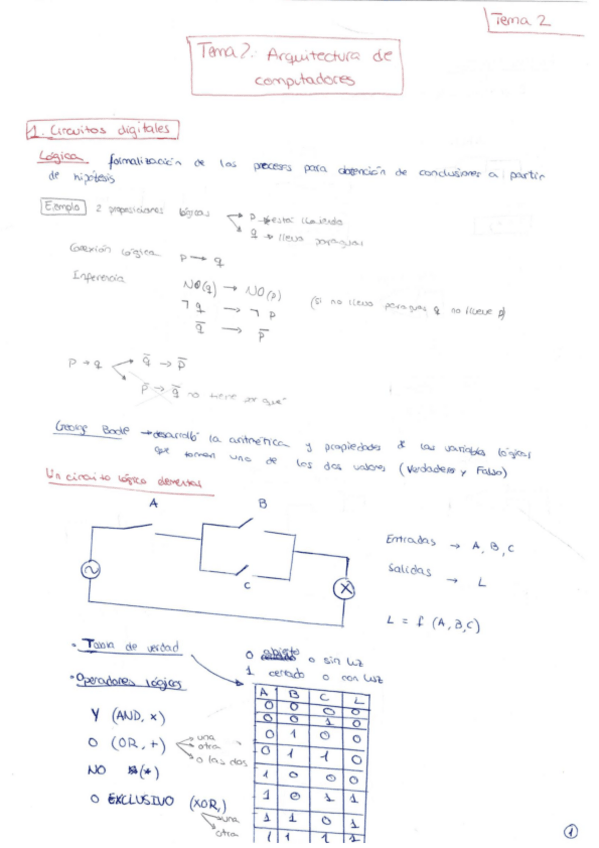 Tema 2
Tema 2: Arquitectura de
computadores
1. Circuitos digitales
Lógica formalización de los procesos para obtención de conclusiones a partir
de hipótesis
Ejemplo 2 proposiciones lógicas
p → está lloviendo
q → llevo paraguas
Conexión lógica p → q
Inferencia
NO(q) → NO(p)
¬ q → ¬ p
q̅ → p̅
(si no llevo paraguas q no llueve p)
p → q
q̅ → p̅
p̅ → q̅ no tiene por que
George Boole → desarrolló la aritmética y propiedades de las variables lógicas
que toman uno de los dos valores (Verdadero y Falso)
Un circuito lógico elemental
A
B
C
Entradas → A, B, C
Salidas → L
L = f (A, B, C)
· Tabla de verdad
0 abierto o sin luz
1 cerrado o con luz
· Operadores lógicos
Y (AND, ×)
O (OR, +)
una
otra
o las dos
NO (*)
O EXCLUSIVO (XOR,)
una
otra
A B C L
0 0 0 0
0 0 1 0
0 1 0 0
0 1 1 0
1 0 0 0
1 0 1 1
1 1 0 1
1 1 1 1
1